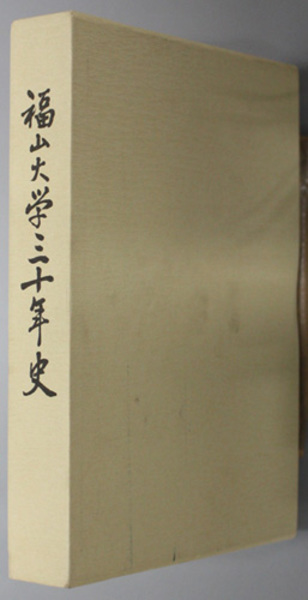 福山大学三十年史